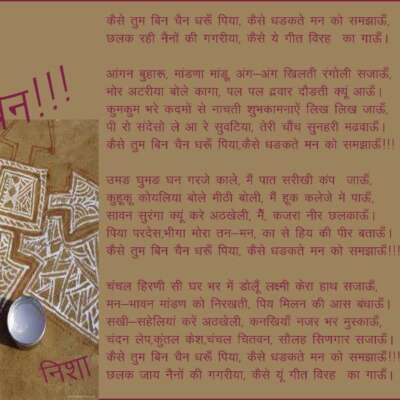 कैसे तुम बिन चैन धरूँ पिया, कैसे धडकते मन को समझाऊँ,
छलक रही नैनों की गगरीया, कैसे ये गीत विरह का गाऊँ।
आंगन बुहारू, मांडणा मांडू, अंग-अंग खिलती रंगोली सजाऊँ,
भोर अटरीया बोले कागा, पल पल द्रवार दौडत्ती क्यूं आऊँ।
कुमकुम भरे कदमों से नाचती शुभकामनाऐं लिख लिख जाऊँ,
पी रो संदेसो ले आ रे सुवटिया, तेरी चौंच सुनहरी मंढवाऊँ।
कैसे तुम बिन चैन धरूँ पिया,कैसे धडकते मन को समझाऊँ!!!
उमड घुमड घन गरजे काले, मैं पात सरीखी कंप जाऊँ,
कुहूकू कोयलिया बोले मीठी बोली, मैं हूक कलेजे मे पाऊँ,
सावन सुरंगा क्यूं करे अठखेली, मैं, कजरा नीर छलकाऊँ।
पिया परदेस,भीगा मोरा तन-मन, का से हिय की पीर बताऊँ।
कैसे तुम बिन चैन धरूँ पिया, कैसे धडकते मन को समझाऊँ!!!
चंचल हिरणी सी घर भर में डोलूँ लक्ष्मी केरा हाथ सजाऊँ,
मन-भावन मांडण को निरखती, पिय मिलन की आस बंधाऊँ।
सखी-सहेलियां करें अठखेली, कनखियाँ नजर भर मुस्काऊँ,
चंदन लेप,कुंतल केश,चंचल चितवन, सौलह सिणगार सजाऊँ।
कैसे तुम बिन चैन धरूँ पिया, कैसे धडकते मन को समझाऊँ!!!
छलक जाय नैनों की गगरीया, कैसे यूं गीत विरह का गाऊँ।
निशा